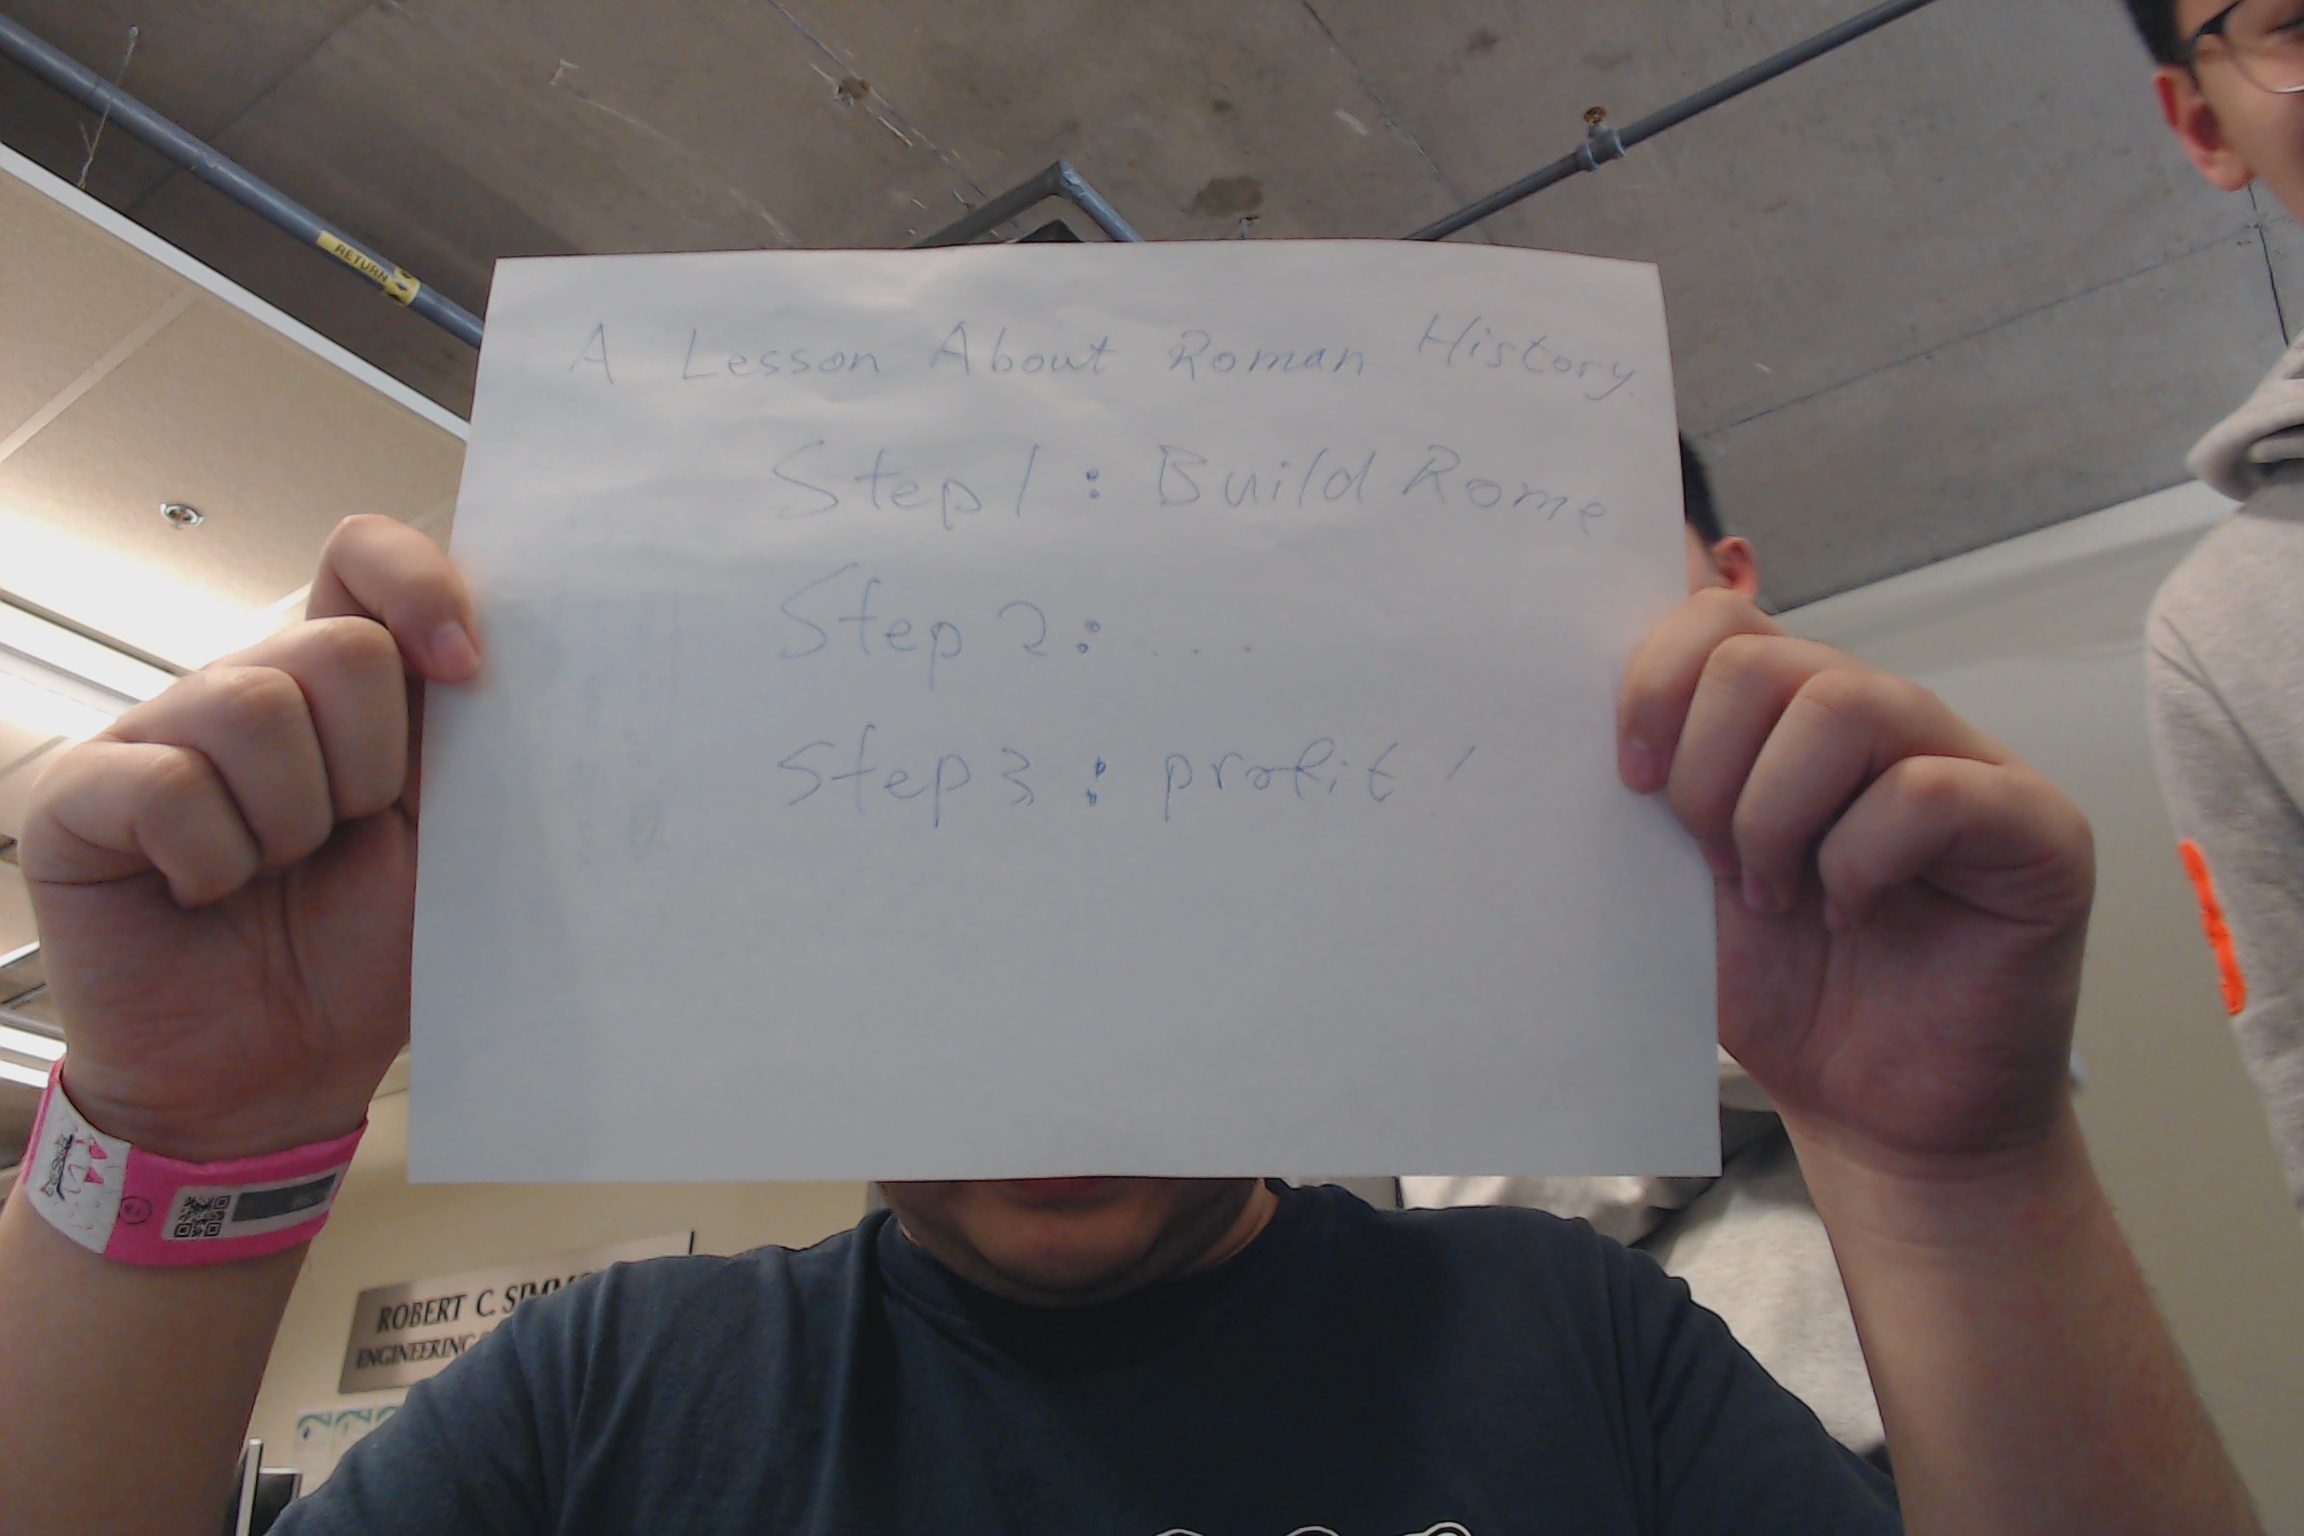 RETURN
A Lesson About Roman History
Step 1: Build Rome
Step 2: ...
Step 3: profit!
ROBERT C.
ENGINEERING